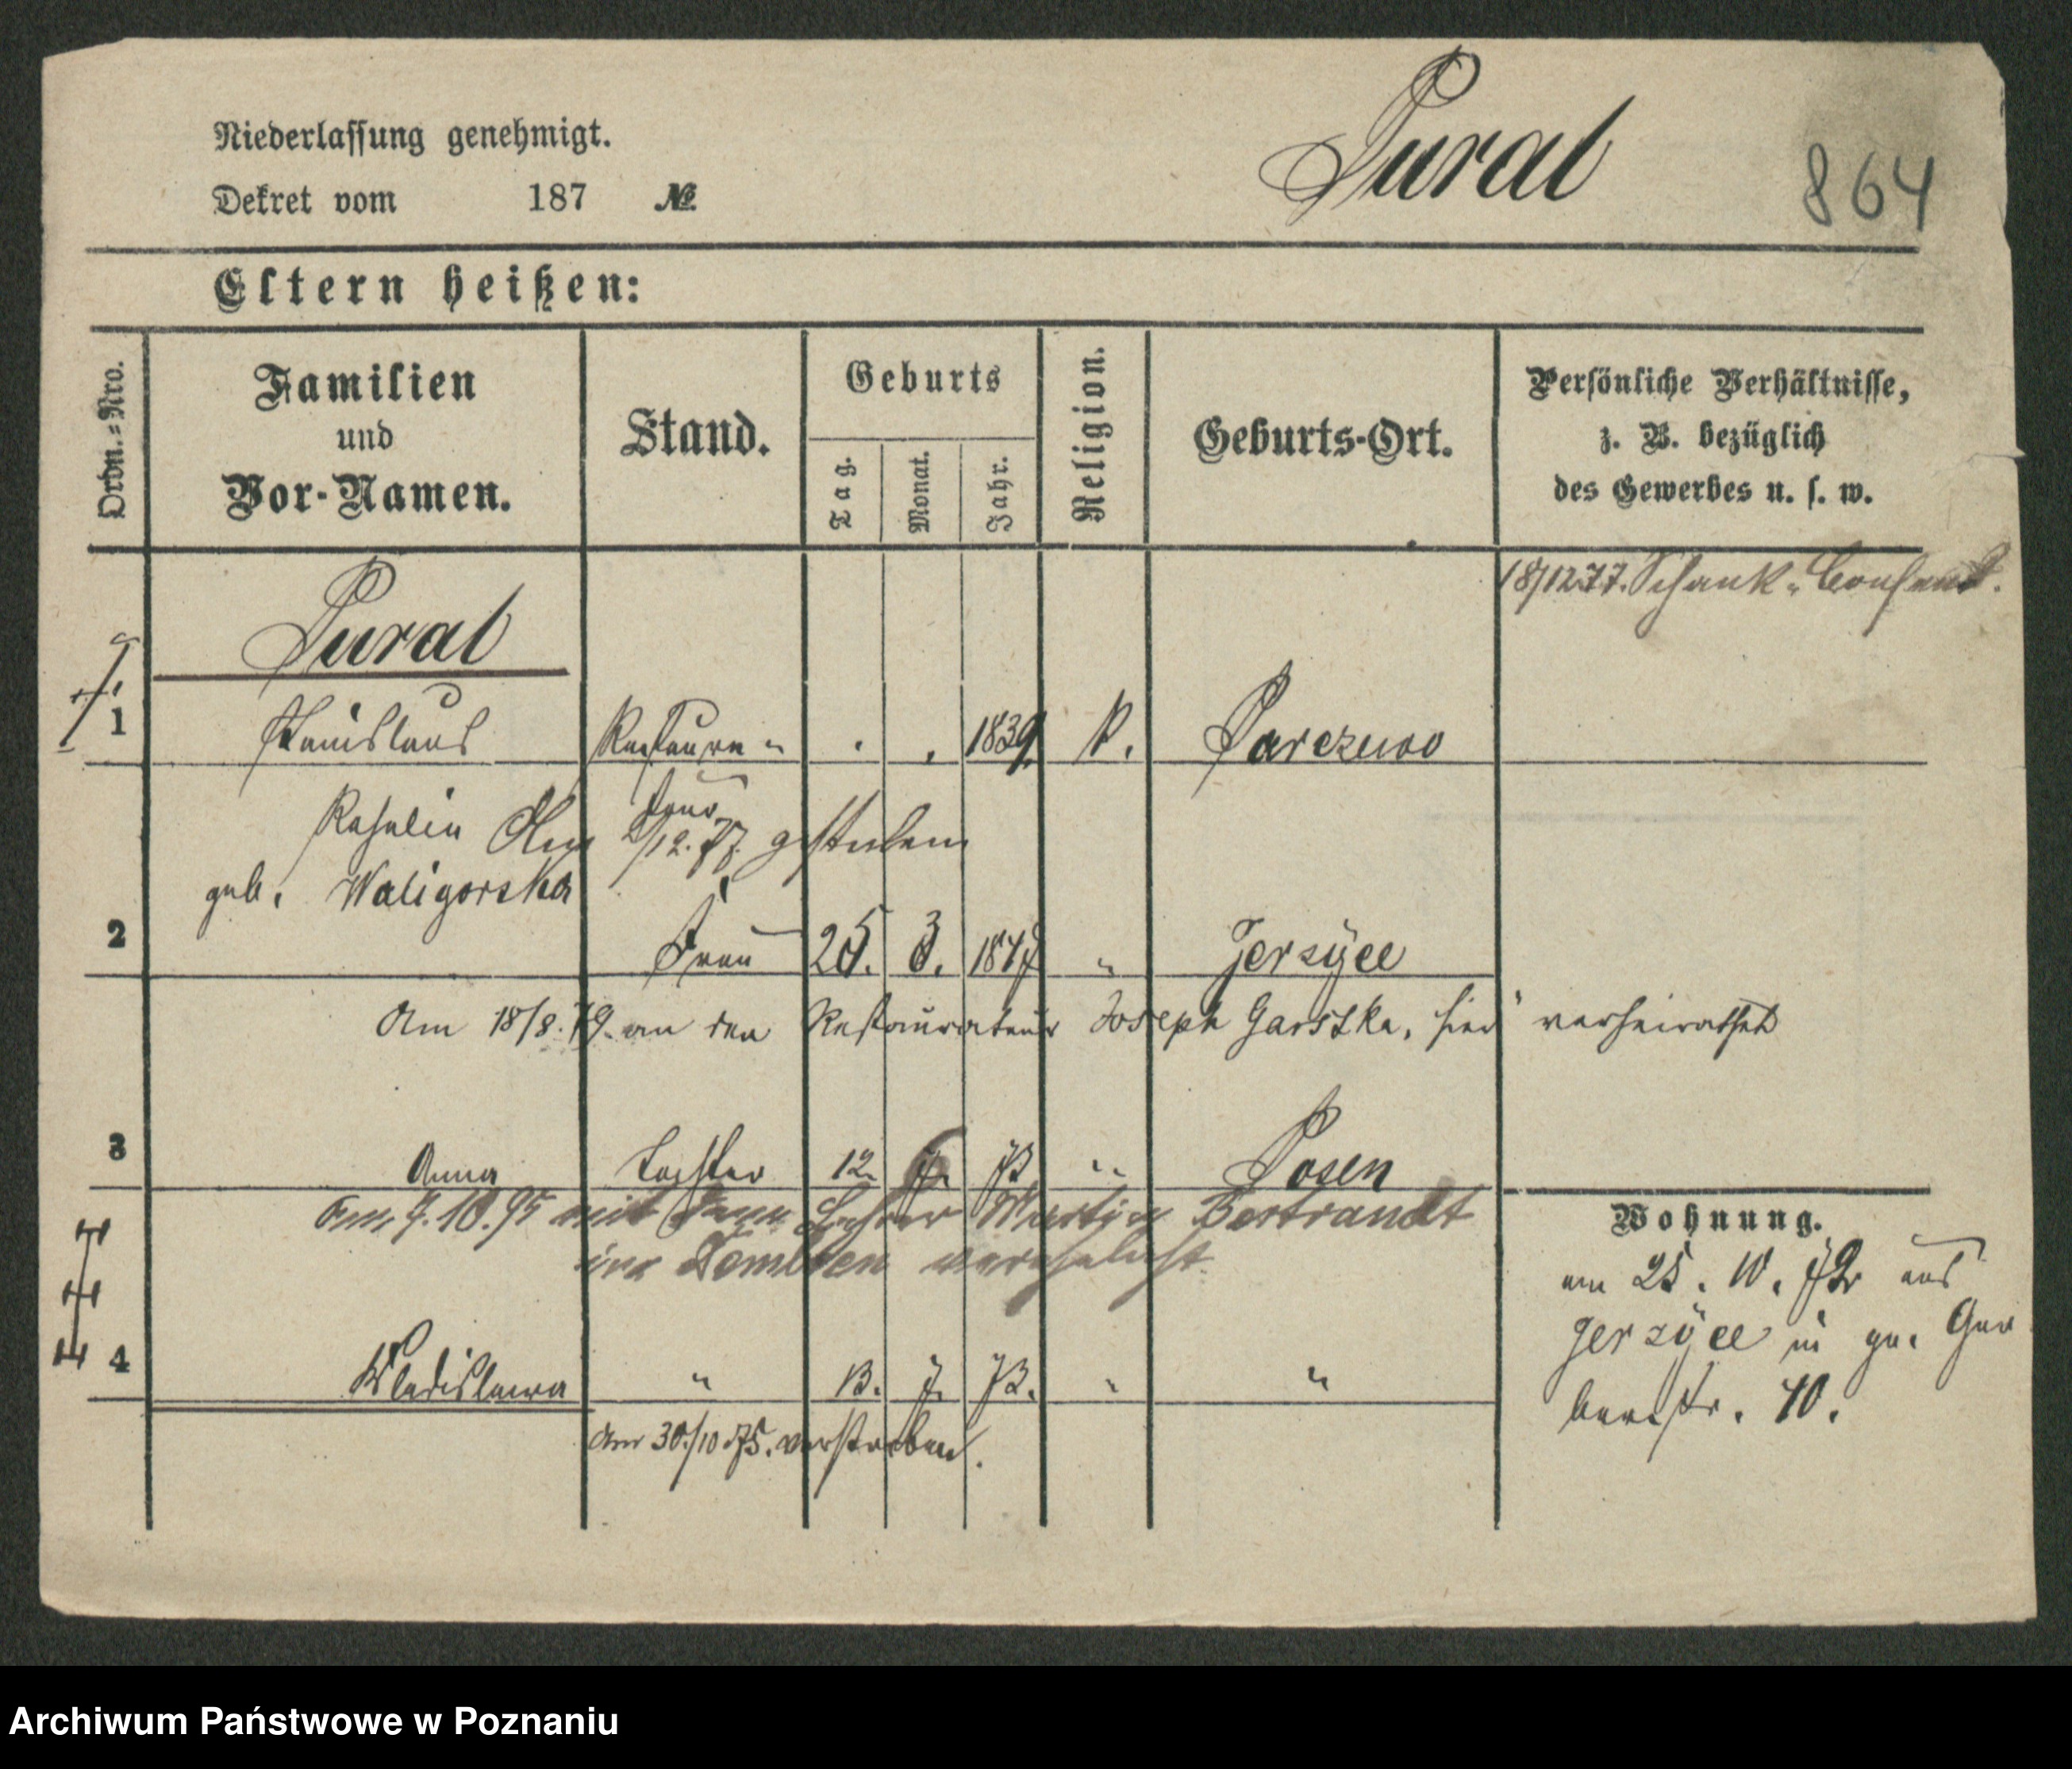 Niederlassung genehmigt.
Dekret vom 187 №
Pural
864
Eltern heißen:
Ordn.-Nro.
Familien
und
Vor-Namen.
Stand.
Geburts
Tag.
Monat.
Jahr.
Religion.
Geburts-Ort.
Persönliche Verhältnisse,
z. B. bezüglich
des Gewerbes u. s. w.
18/12 77. Schank-Consens.
Pural
1 Stanislaus Restaura- 1839. K. Parczewo
teur
Rosalia Am 2/12. 77. gestorben
geb. Waligorska
2 Frau 25. 8. " Jerzyce
Am 18/8. 79. an den Restaurateur Joseph Garstka, hier verheirathet
3 Anna Tochter 12. 7. 73 " Posen
Am 7.10.95 mit dem Lehrer Martin Bertrandt
in verehelicht.
4 Wladislawa " 13. 7. 73. " "
Am 30/10 75. verstorben.
Wohnung.
am 25. 10. 72 aus
Jerzyce in gr. Ger
berstr. 40.
Archiwum Państwowe w Poznaniu